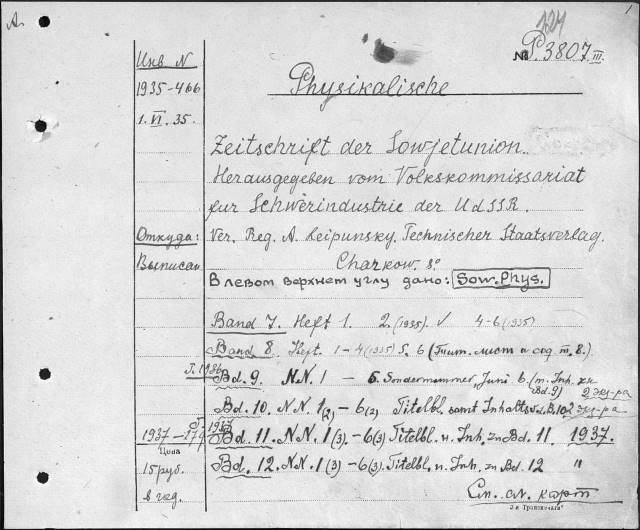 A.
1
124
№ P. 3807.III.
Инв N
1935-466
1. VI. 35.
Physikalische
Zeitschrift der Sowjetunion.
Herausgegeben vom Volkskommissariat
fur Schwerindustrie der UdSSR.
Откуда:
Выписан
Ver. Reg. A. Leipunsky. Technischer Staatsverlag.
Charkow. 8°
В левом верхнем углу дано: Sow. Phys.
Band 7. Heft 1. 2. (1935). √ 4-6 (1935)
Band 8. Heft. 1-4 (1935) 5. 6 (Тит. лист и сод т. 8.)
Г. 1936
Bd. 9. N.N. 1 — 6. Sondernummer, Juni 6. (m. Inh. zu Bd. 9) 2 экз-ра
Bd. 10. N.N. 1(2) — 6(2) Titelbl. samt Inhaltsv. 2 экз-ра
Г. 1937
1937-179
Bd. 11. N.N. 1(3). -6(3) Titelbl. u. Inh. zu Bd. 11. 1937.
Цена
15 руб.
в год.
Bd. 12. N.N. 1(3) -6(3). Titelbl. u. Inh. zu Bd. 12 "
См. сл. карт